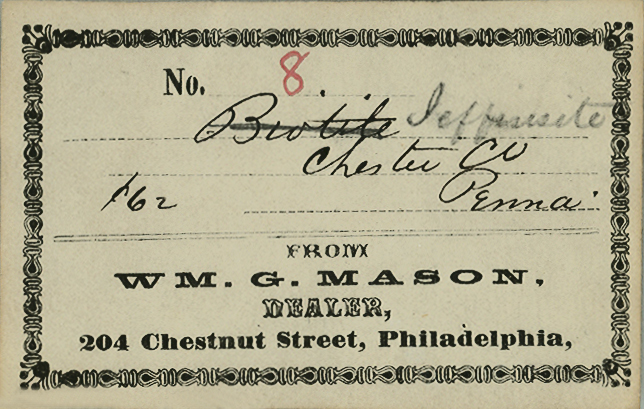 No. 8
Biotite Jefferisite
Chester Co
Penna.
162
FROM
WM. G. MASON,
DEALER,
204 Chestnut Street, Philadelphia,